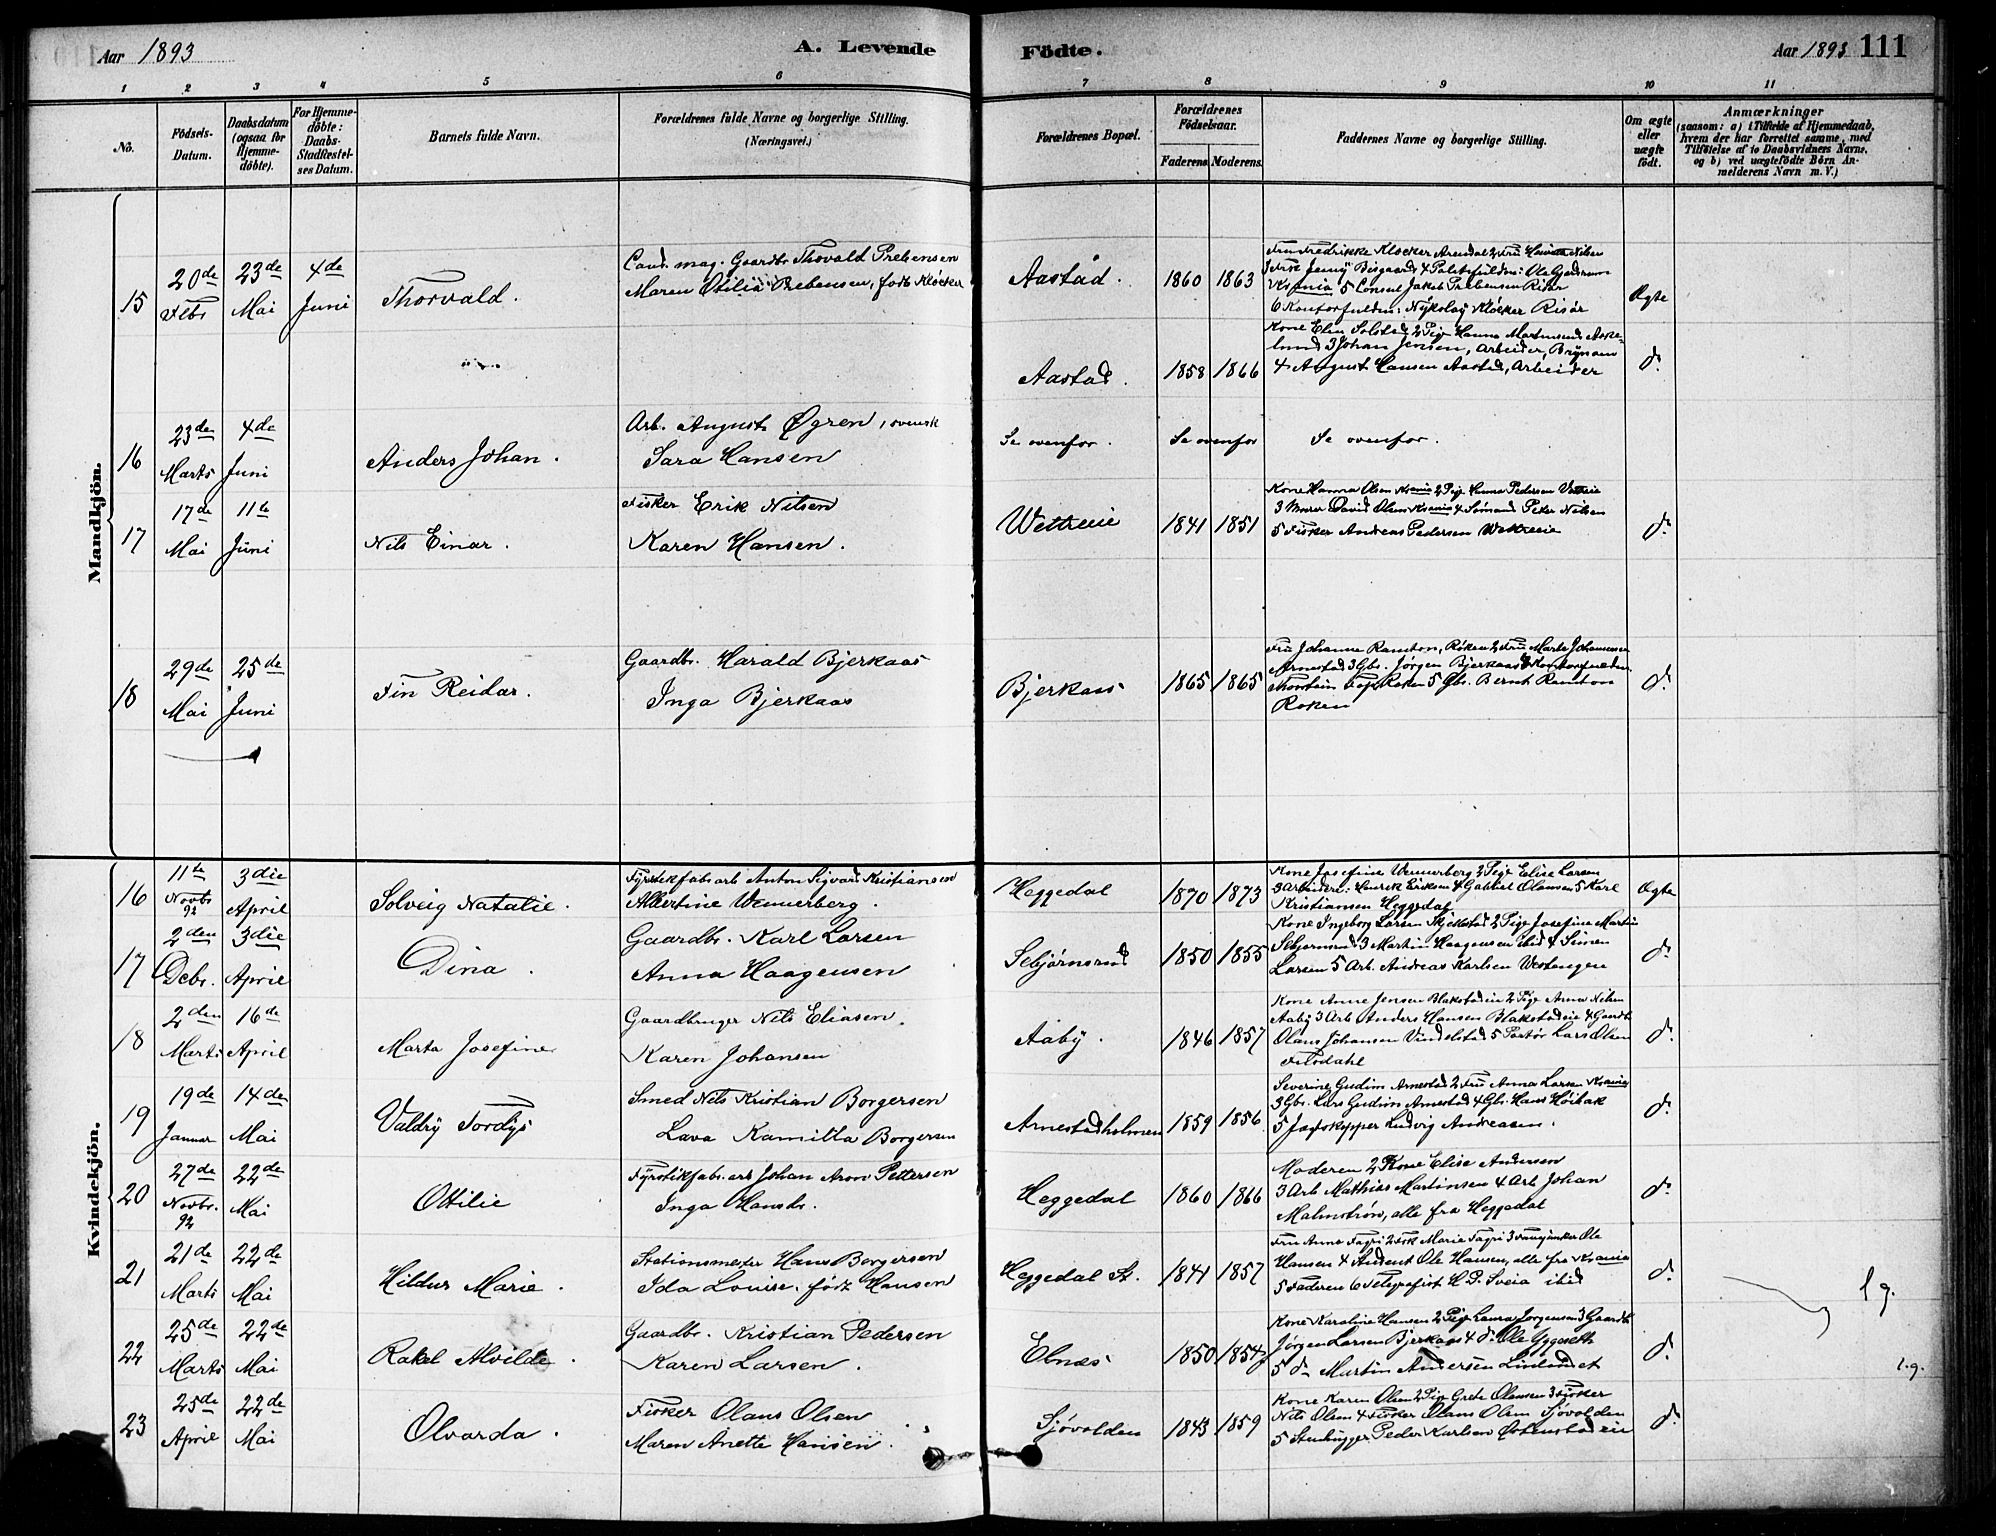 Aar 1893
A. Levende
Födte.
Aar 1893 111
1 2 3 4 5 6 7 8 9 10 11
No.
Födsels-
Datum.
Daabsdatum
(ogsaa for
Hjemme-
döbte).
For Hjemme-
döbte:
Daabs-
Stadfæstel-
ses Datum.
Barnets fulde Navn.
Forældrenes fulde Navne og borgerlige Stilling.
(Næringsvei.)
Forældrenes Bopæl.
Forældrenes
Födselsaar.
Faderens Moderens.
Faddernes Navne og borgerlige Stilling.
Om ægte
eller
uægte
födt.
Anmærkninger
(saasom: a) i Tilfælde af Hjemmedaab,
hvem der har forrettet samme, med
Tilföielse af to Daabsvidners Navne,
og b) ved uægtefödte Börn An-
melderens Navn m. V.)
Mandkjön.
15
20de
Febr
23de
Mai
4de
Juni
Thorvald.
Cand. mag. Gaardbr. Thovald Prebensen
Maren Otilia Prebensen, født Kløcker
Aastad.
1860 1863
Fru Fredrikke Kløcker Arendal 2 Fru Nilsen
Frk Jenny Bisgaard 4 Ole Gjedrum
Krania 5 Consul Jakob Prebensen Risør
6 Kontorfuldm: Nykolay Kløcker Risør
Ægte
Aastad.
1858 1866
Kone Elen Solstad 2 Pige Hanna Martinsen Aske-
lund 3 Johan Jensen, Arbeider,
4 August Hansen Aastad, Arbeider
do
16
23de
Marts
4de
Juni
Anders Johan.
Arb. August Øgren, svensk
Sara Hansen
Se ovenfor.
Se ovenfor
Se ovenfor.
17
17de
Mai
11te
Juni
Nils Einar.
Fisker Erik Nilsen
Karen Hansen.
Wettreeie
1841 1851
Kone Hanna Olsen Krania 2 Pige Hanna Pedersen
3 Murer David Olsen Krania 4 Sømand Peter Nilsen
5 Fisker Andreas Pedersen Wettreeie
do
18
29de
Mai
25de
Juni
Fin Reidar.
Gaardbr. Harald Bjerkaas
Inga Bjerkaas
Bjerkaas
1865 1865
Fru Johanne Ramton, Røken 2 Fru Marte Johannesen
Arnestad 3 Gbr. Jørgen Bjerkaas 4 Kontorfuldm.
Thorstein Røken 5 Gbr. Bernt Ramton
Røken
do
Kvindekjön.
16
11te
Novbr
92
3die
April
Solveig Natalie.
Fyrstikfabsarb Anton Sigvard Kristiansen
Albertine Wennerberg.
Heggedal
1870 1873
Kone Josefine Wennerberg 2 Pige Elise Larsen
3 Arbeidere: Henrik Eriksen 4 Gabriel Olausen 5 Karl
Kristiansen Heggedal
Ægte
17
2den
Decbr.
3die
April
Dina.
Gaardbr. Karl Larsen
Anna Haagensen
Sebjørnsrud
1850 1855
Kone Ingeborg Larsen 2 Pige Josefine Martin
Sebjørnsrud 3 Martin Haagensen ibid 4 Simen
Larsen 5 Arb. Andreas Karlsen Westengen
do
18
2den
Marts
16de
April
Marta Josefine
Gaardbruger Nils Eliasen.
Karen Johansen
Aaby.
1846 1857
Kone Anne Jensen Blakstadeie 2 Pige Anna Nilsen
Aaby 3 Arb Anders Hansen Blakstadeie 4 Gaardbr
Olaus Johansen 5 Pastør Lars Olsen
do
19
19de
Januar
14de
Mai
Valdry Tordys
Smed Nils Kristian Borgersen
Lava Kamilla Borgersen
Arnestadholmen
1859 1856
Severine Gudim Arnestad 2 Fru Anna Larsen Krania
3 Gbr. Lars Gudim Arnestad 4 Gbr. Hans Høibak
5 Jagtskipper Ludvig Andreasen.
do
20
27de
Novbr.
92
22de
Mai
Otilie
Fyrstikfabr.arb Johan Aron Pettersen
Inga Hansdr.
Heggedal
1860 1866
Moderen 2 Kone Elise Andersen
3 Arb Mathias Martinsen 4 Arb. Johan
Malmstrøm, alle fra Heggedal
do
21
21de
Marts
22de
Mai
Hildur Marie.
Stationsmester Hans Borgersen
Ida Louise. født Hansen
Heggedal St.
1841 1857
Fru Anna Fagri 2 Frk Marie Fagri 3 Ole
Hansen 4 Student Ole Hansen, alle fra Krania
5 Faderen 6 Telegrafist H. P. Sveia ibid
do
1 g.
22
25de
Marts
22de
Mai
Rakel Alvilde.
Gaardbr. Kristian Pedersen
Karen Larsen.
Elnæs
1850 1854
Kone Karoline Hansen 2 Pige Laura Jorgensen 3 Gaardb
Jørgen Larsen Bjerkaas 4 do Ole Yggeseth
5 do Martin Andersen Linlandet
do
1.g.
23
25de
April
22de
Mai
Olvarda.
Fisker Olaus Olsen
Maren Anette Hansen.
Sjøvolden
1843 1859
Kone Karen Olsen 2 Pige Grete Olausen 3 Fisker
Nils Olsen 4 Fisker Olaus Olsen Sjøvolden
5 Stenhugger Peder Karlsen Østenstadeie
do